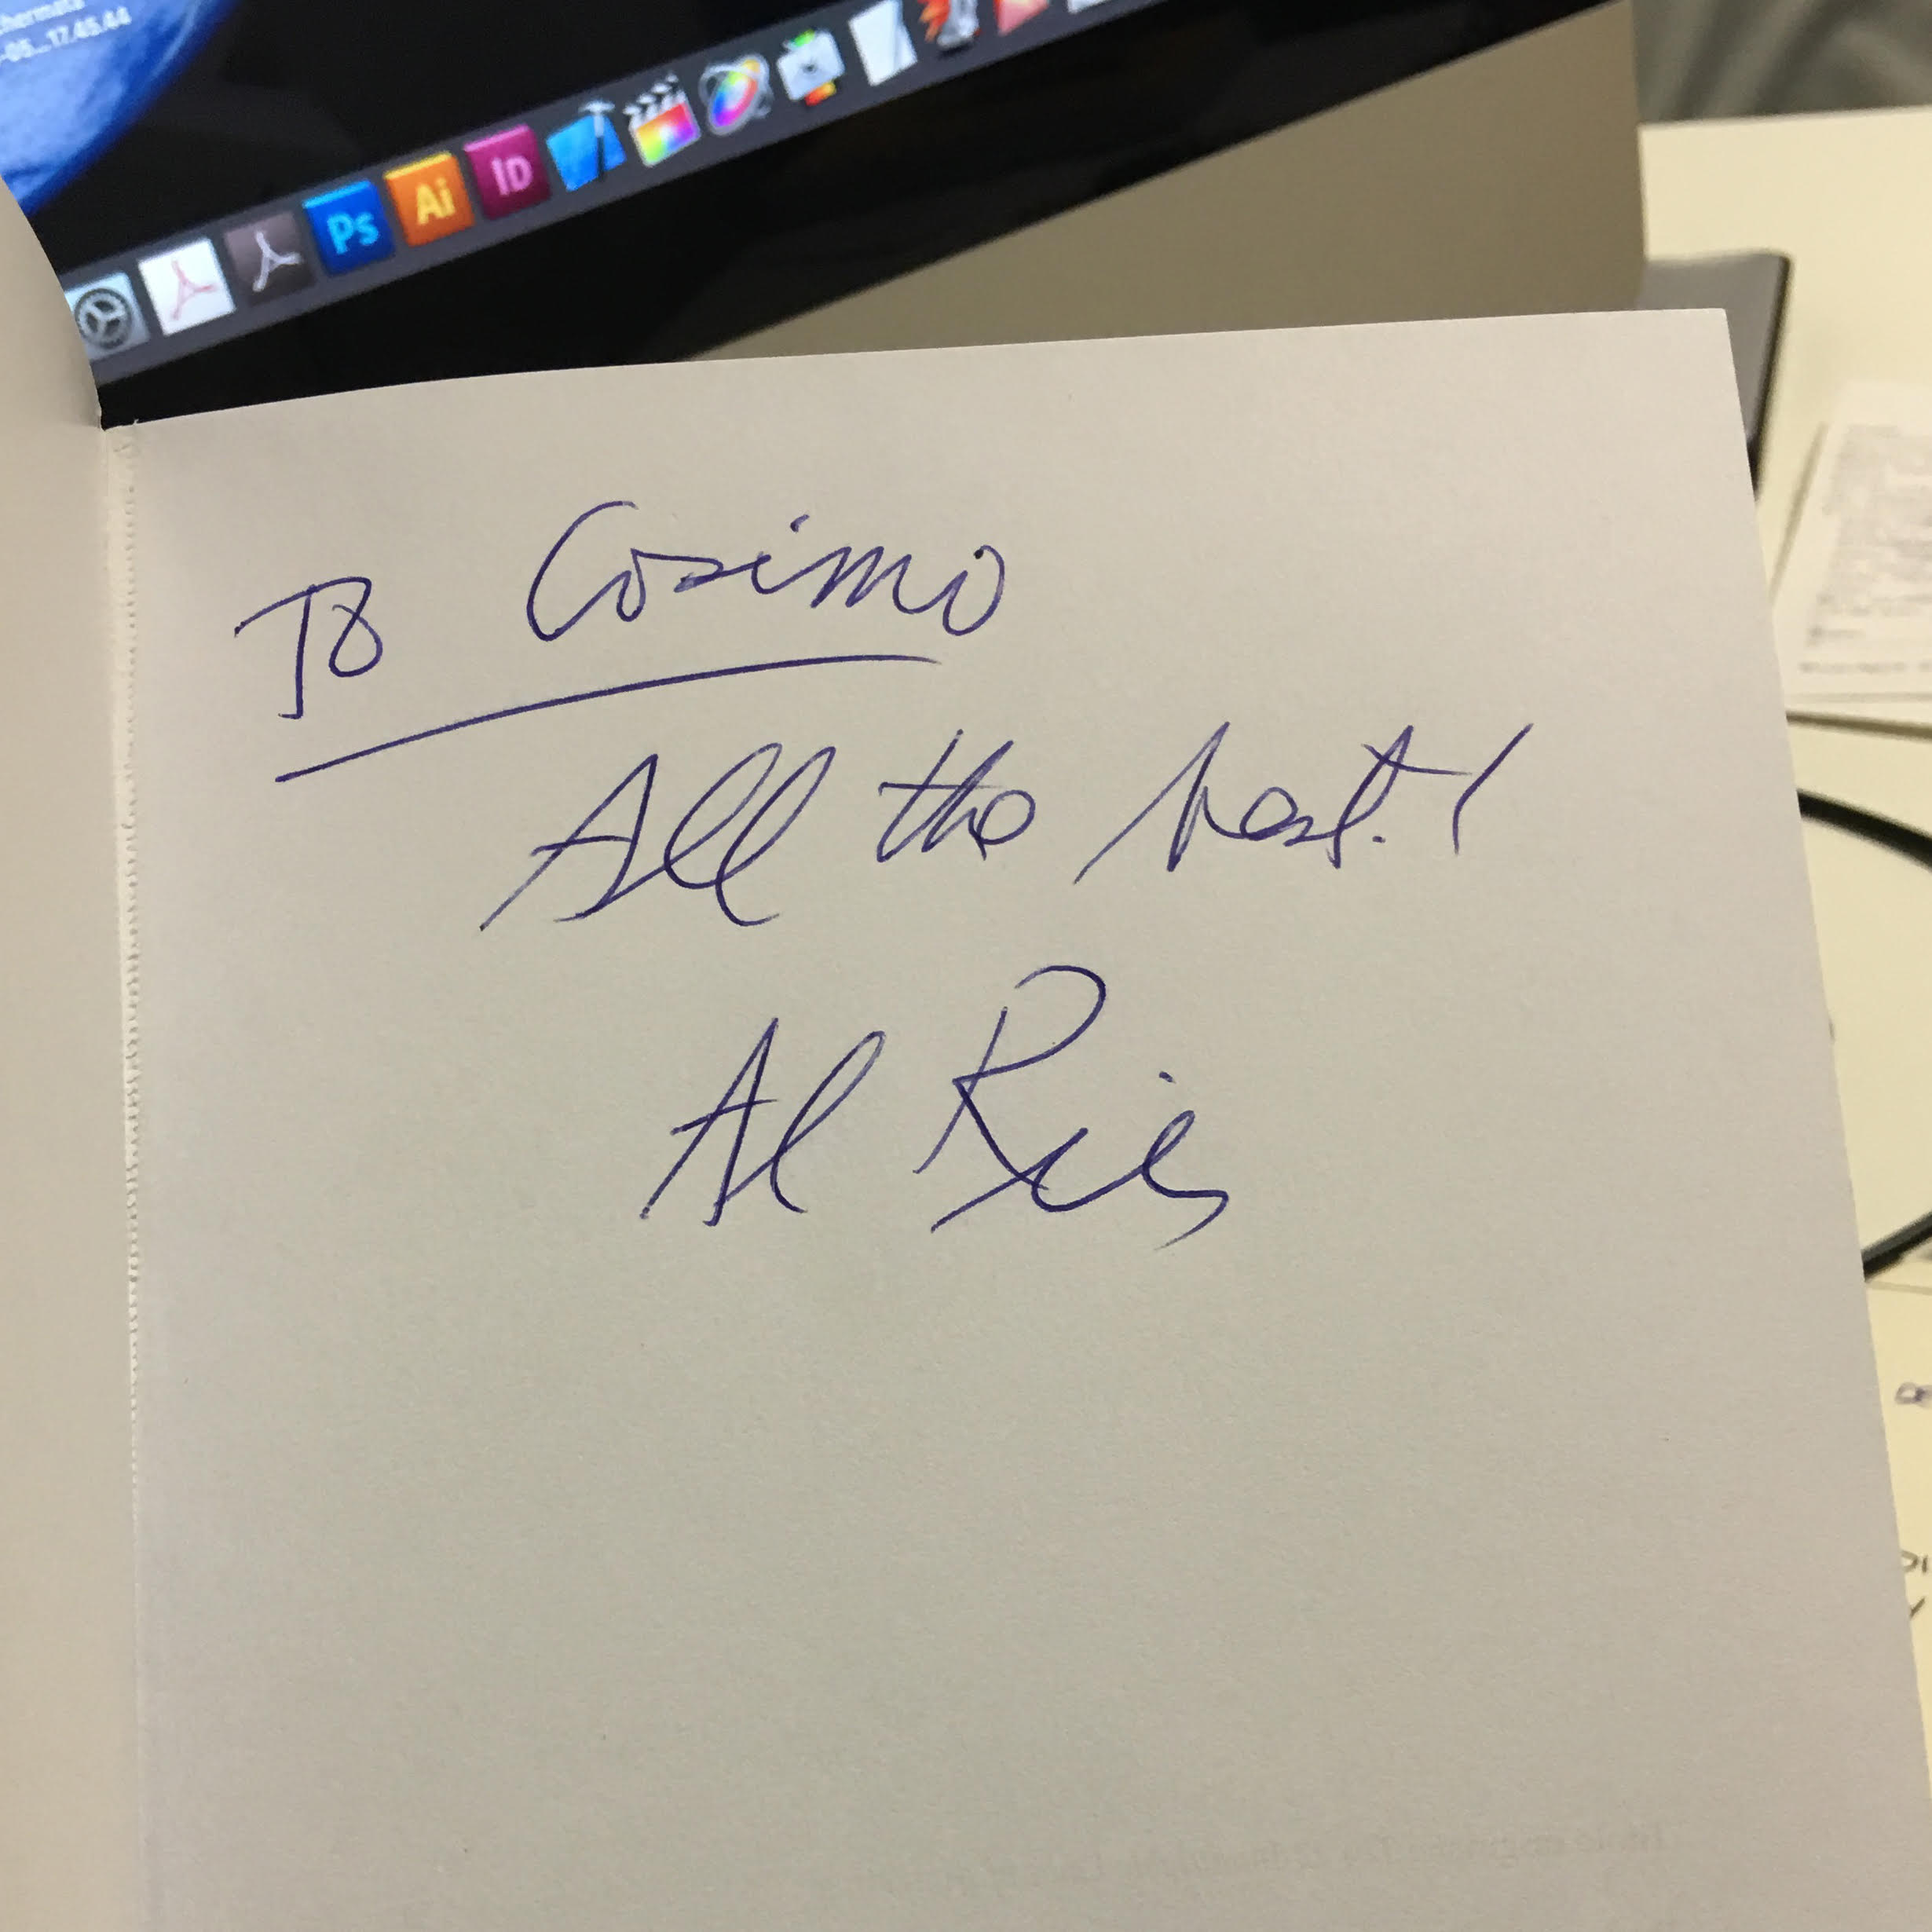 -05...17.45.44
Ps Ai ID
To Cosimo
All the best!
Al Ries